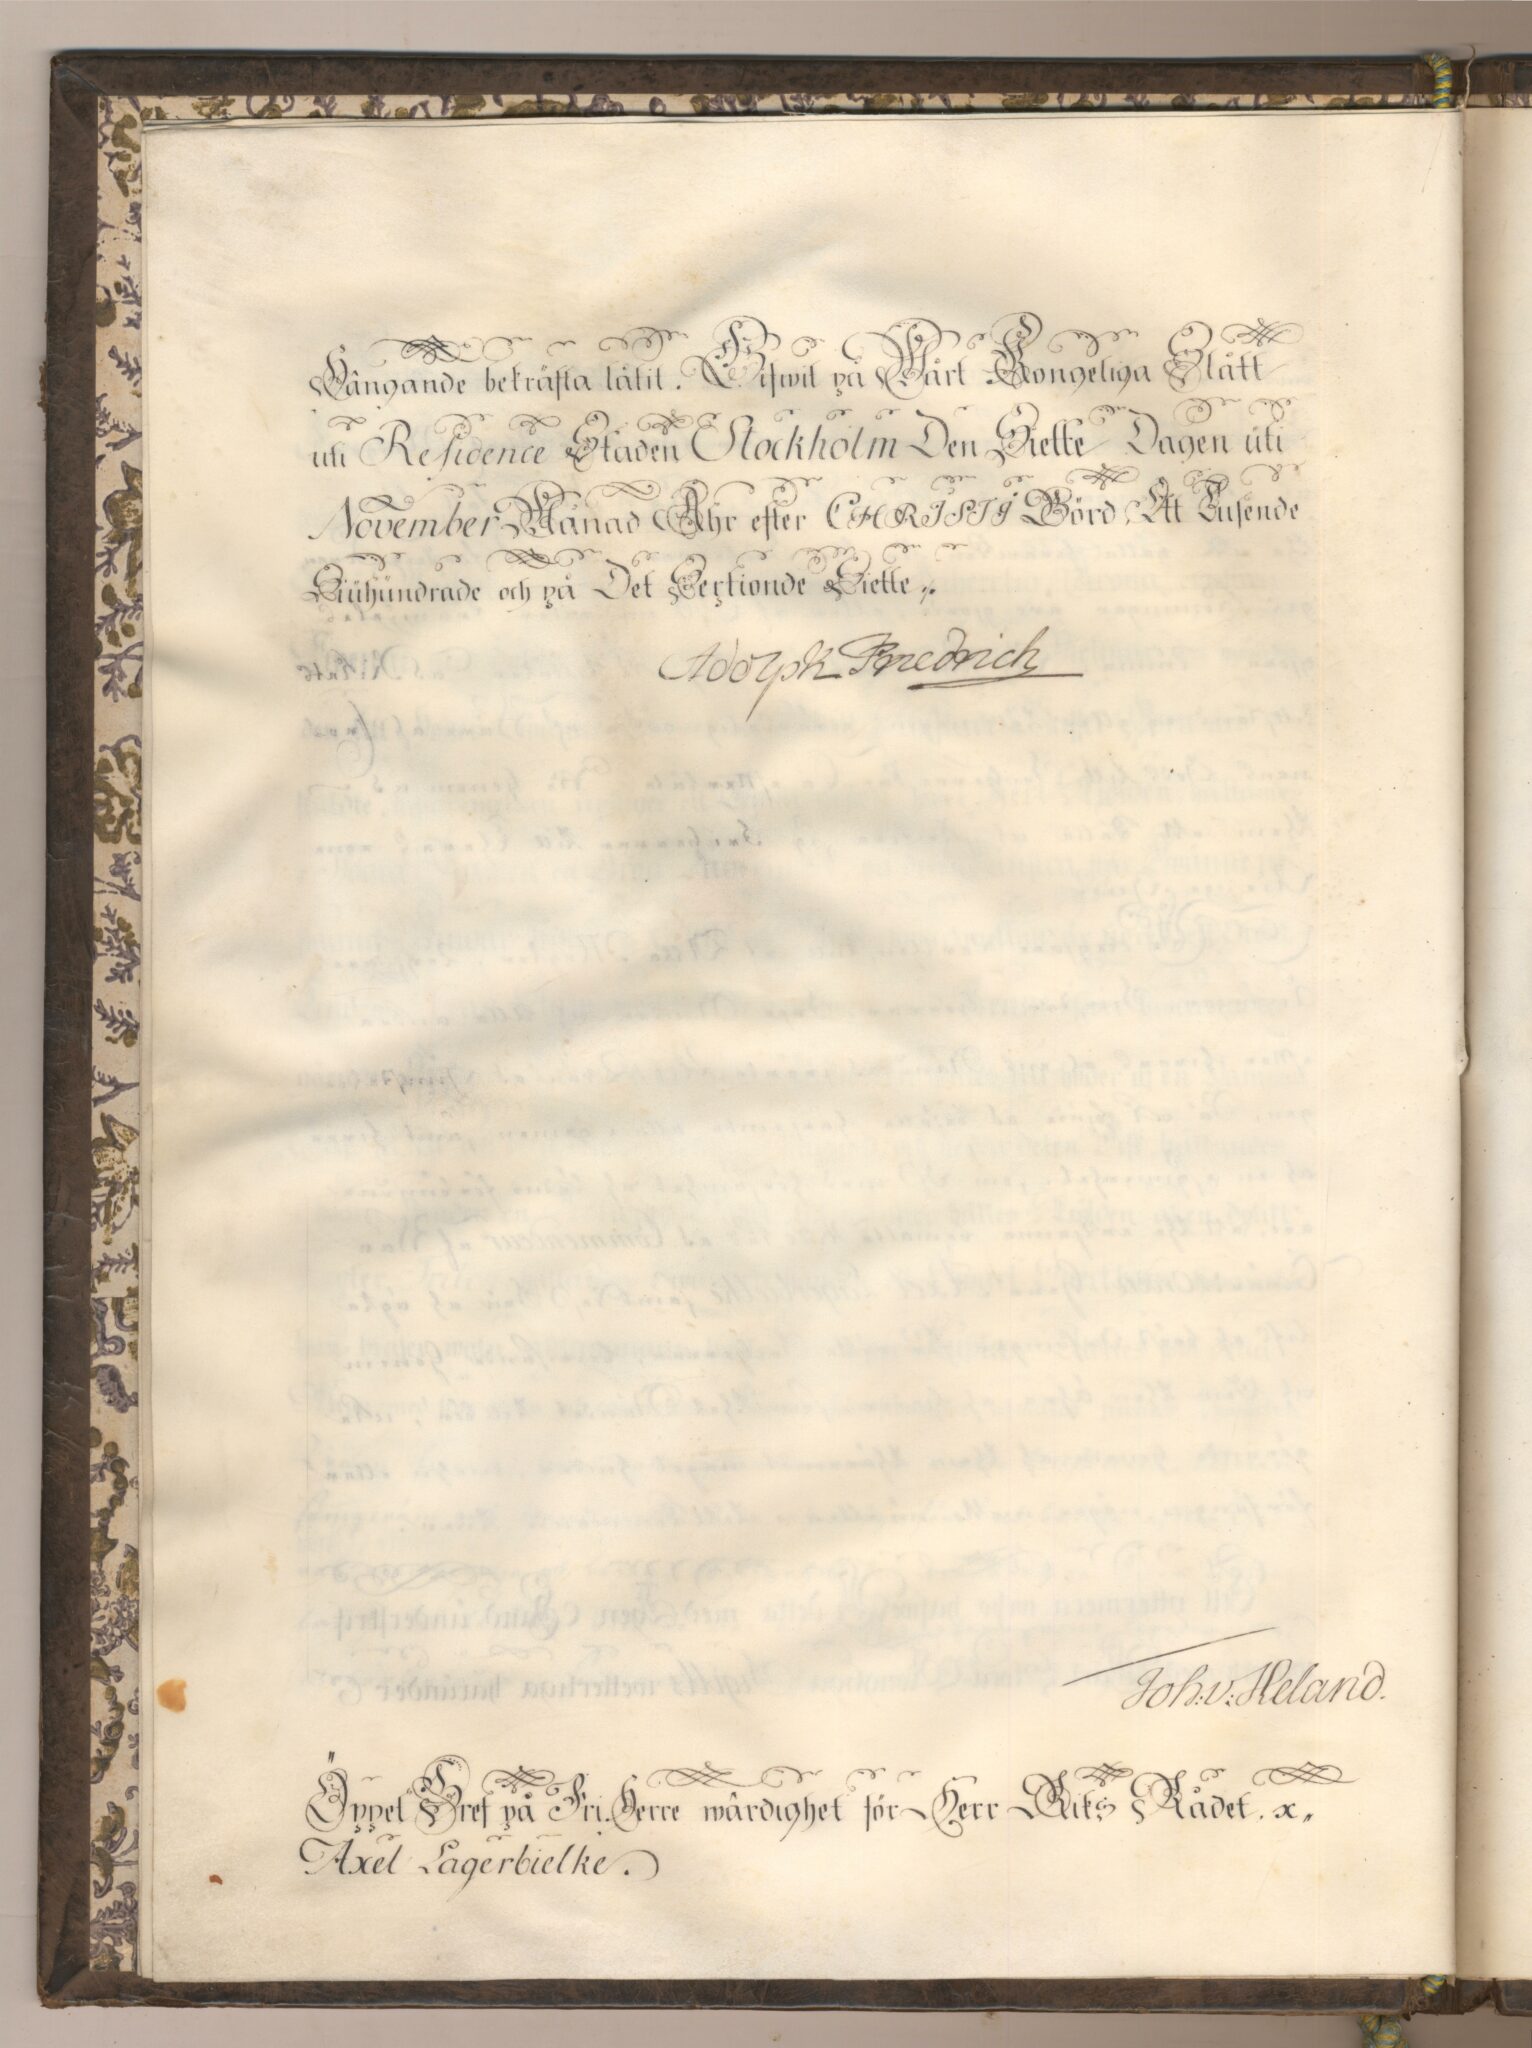 Hängande bekräfta låtit. Gifwit på Wårt Kongeliga Slått
uti Residence Staden Stockholm Den Siette Dagen uti
November Månad Åhr efter CHRISTI Börd, Ett Tusende
Siuhundrade och på Det Sextionde Siette.
Adolph Friedrich
Joh: v: Heland.
Öppet Bref på Fri.Herre wärdighet för Herr Riks Rådet. x.
Axel Lagerbielke.